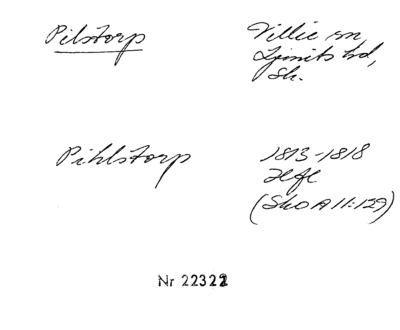 Pilstorp
Villie sn,
Ljunits hd,
Sk.
Pihlstorp
1813-1818
Hfl
(SkO A 11:129)
Nr 22322